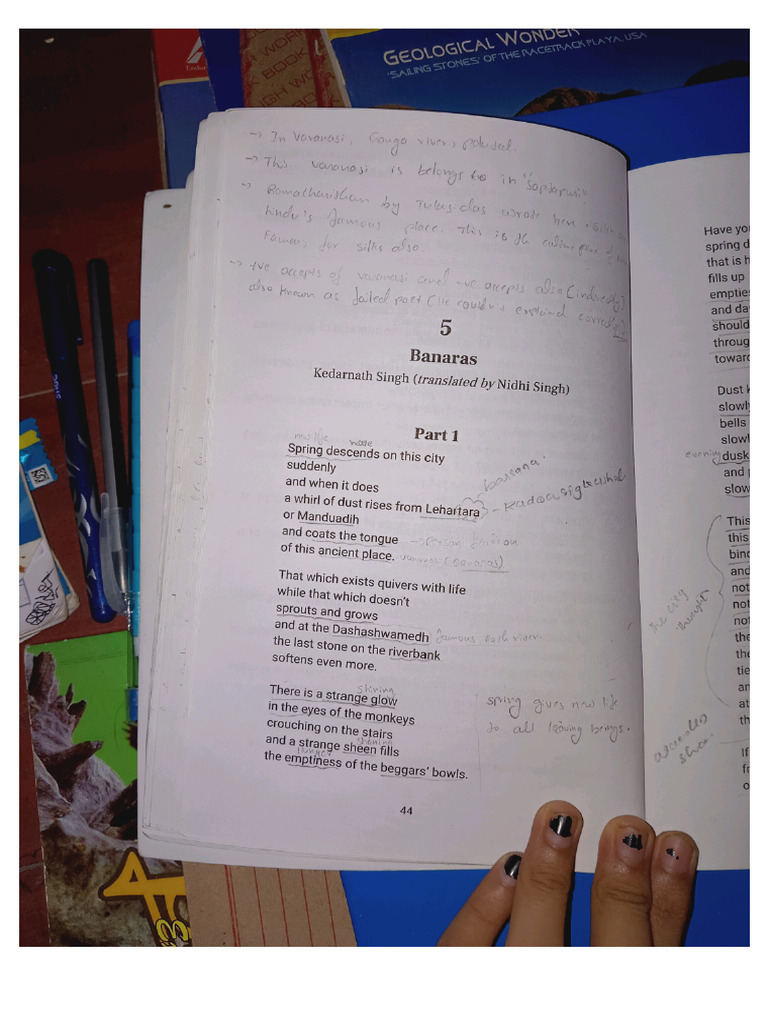 GEOLOGICAL WONDER
'SAILING STONES' OF THE RACETRACK PLAYA, USA
→ In Varanasi, Ganga river is polluted.
→ This varanasi is belongs to in "Saptapuri"
→ by Tulsidas wrote here
hindu's famous place. This is the
Famous for silks also
→ +ve accepts of varanasi and -ve accepts also (indirectly)
also known as failed poet (He couldn't explained correctly)
5
Banaras
Kedarnath Singh (translated by Nidhi Singh)
Part 1
Spring descends on this city
suddenly
and when it does
a whirl of dust rises from Lehartara
or Manduadih
and coats the tongue
of this ancient place.
(banaras)
That which exists quivers with life
while that which doesn't
sprouts and grows
and at the Dashashwamedh
famous
the last stone on the riverbank
softens even more.
There is a strange glow
in the eyes of the monkeys
crouching on the stairs
and a strange sheen fills
the emptiness of the beggars' bowls.
shining
spring gives new life
to all leaving beings.
44
Have you
spring d
that is h
fills up
empties
and da
should
throug
towar
Dust k
slowly
bells
slowl
evening
dusk
and p
slow
This
this
bind
and
not
not
not
the
the
tie
an
at
th
the city
thought
If
fr
o